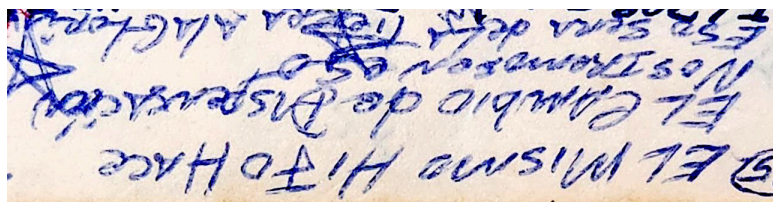 ⑤ EL MISMO HIJO HACE
EL CAMBIO de DISPENSACIÓN
NOSTROMOSEN ESO
ESO SERA de LA TIERRA A LA GLORIA